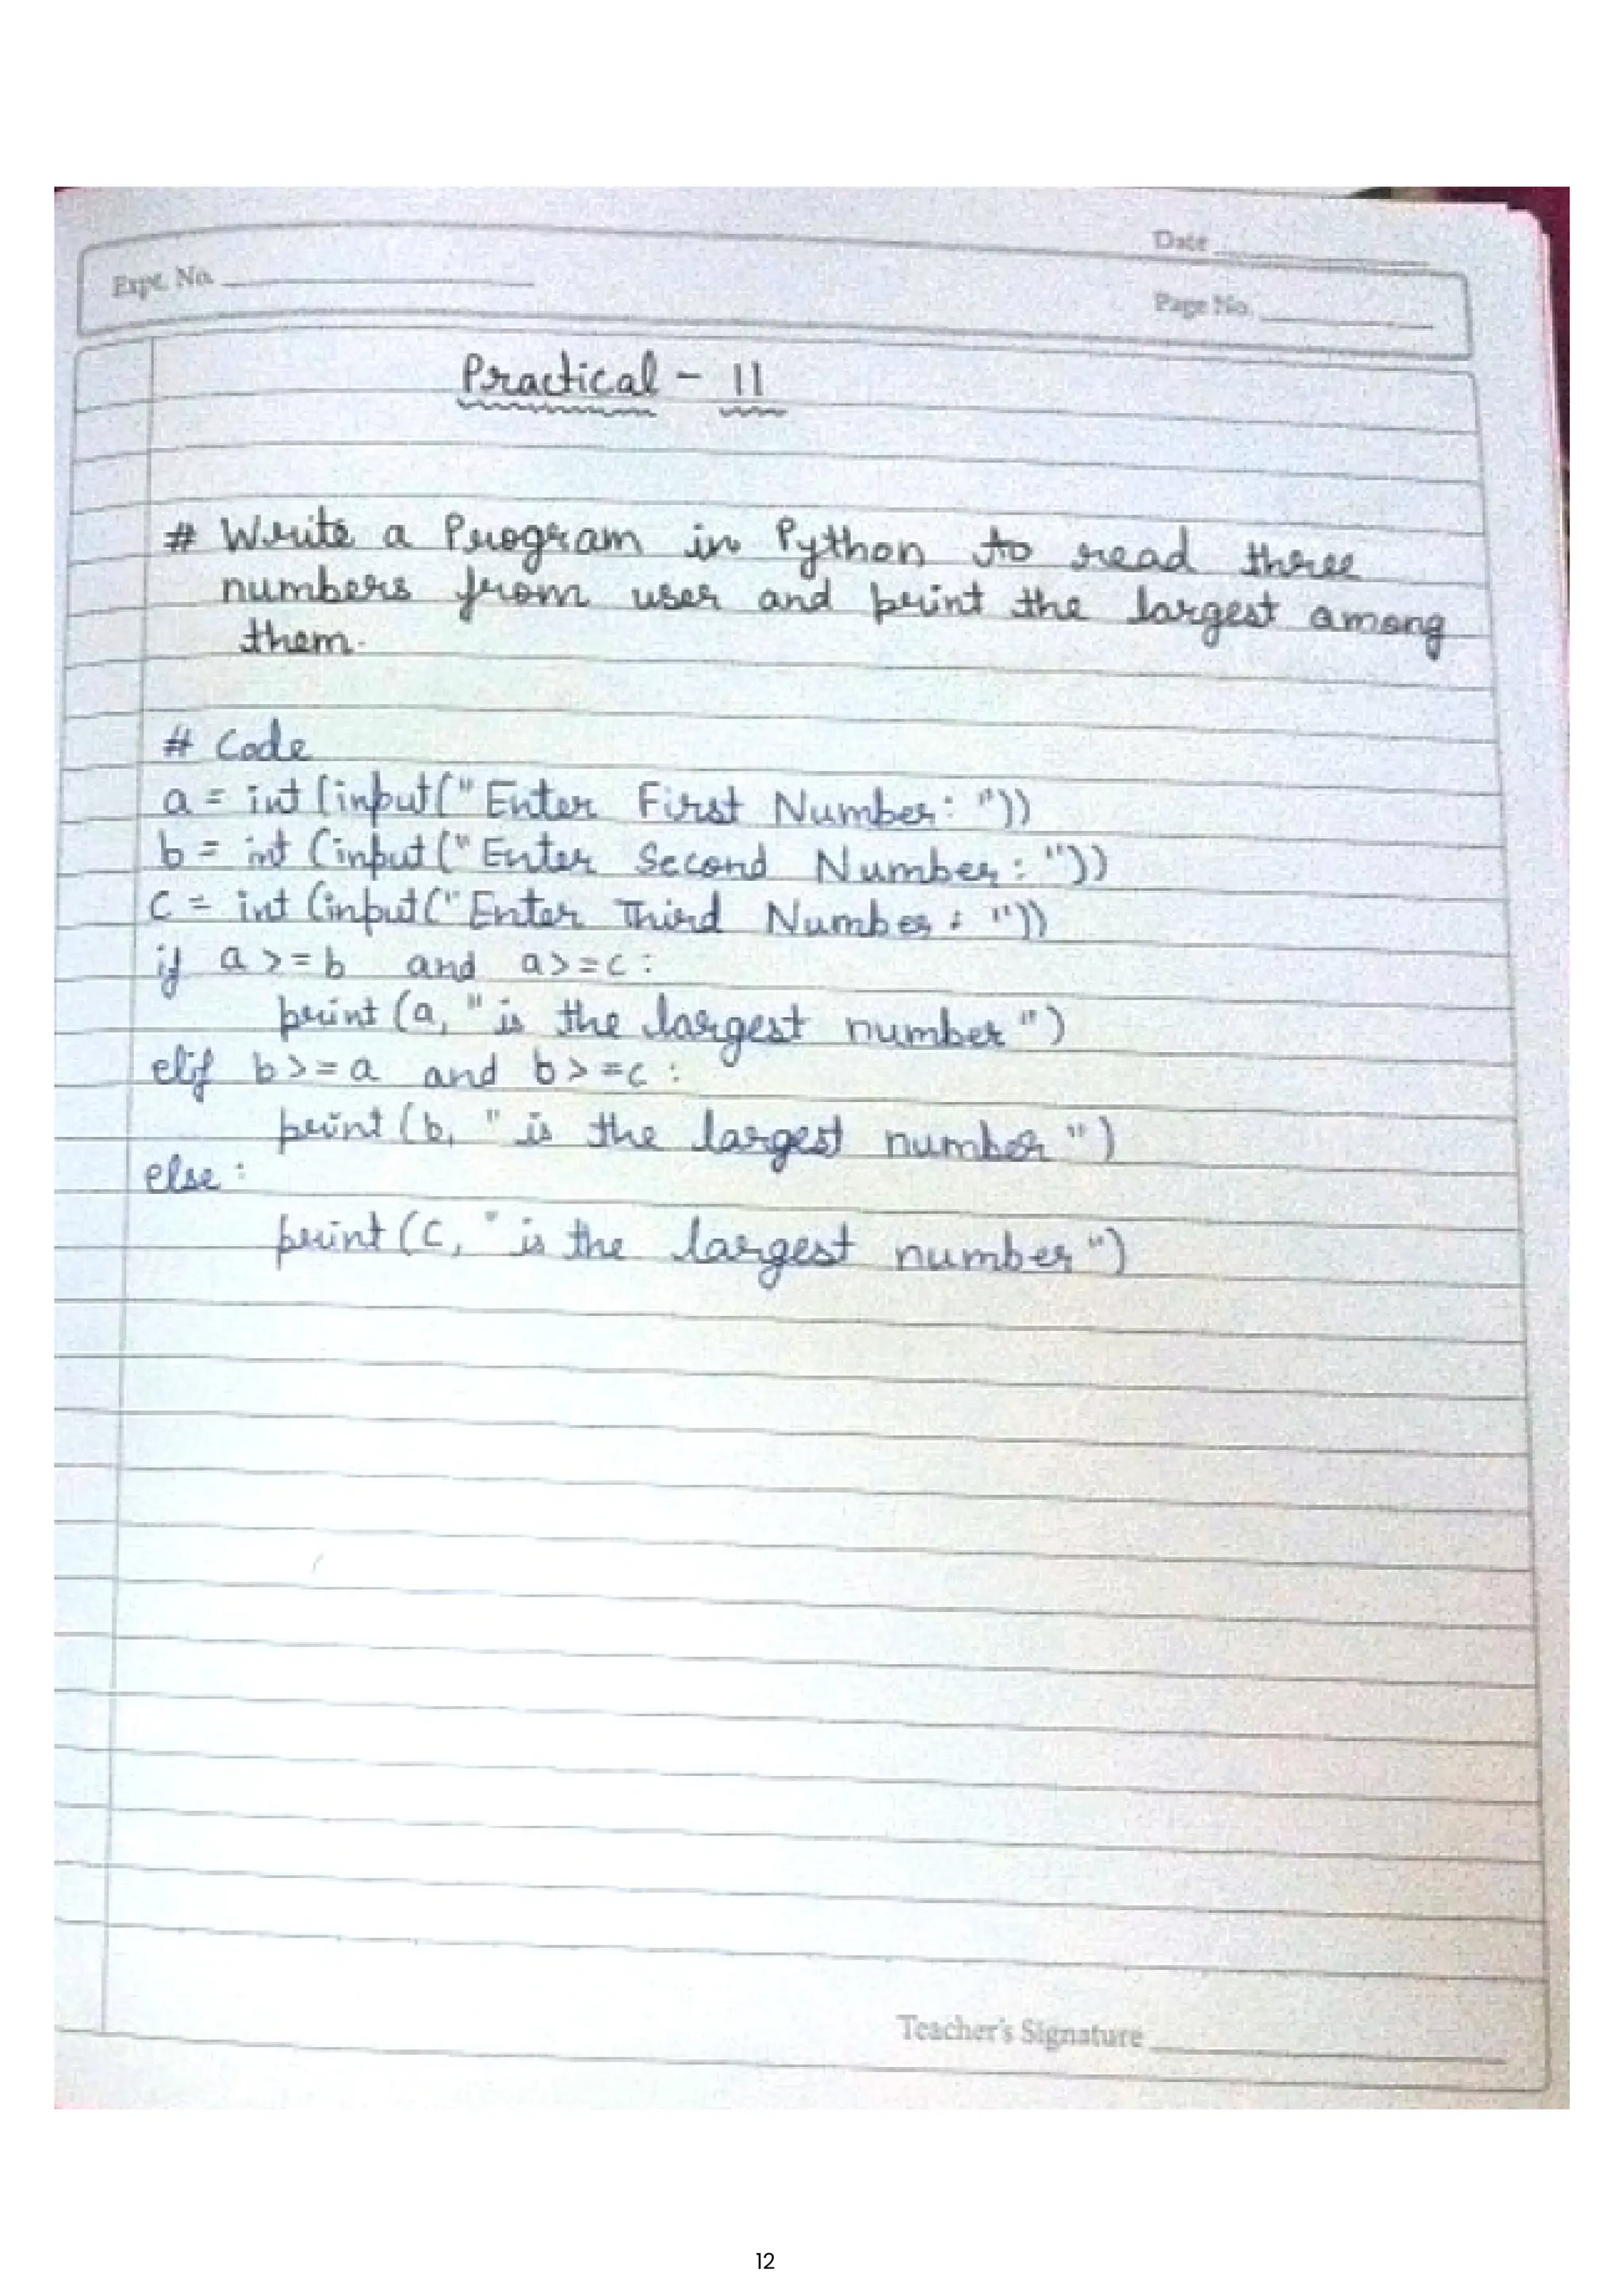 Date
Expt. No.
Page No.
Practical - 11
# Write a Program in Python to read three
numbers from user and print the largest among
them.
# Code
a = int (input(" Enter First Number: "))
b = int (input (" Enter Second Number: "))
c = int (input (" Enter Third Number: "))
if a >= b and a >= c :
print (a, " is the largest number ")
elif b >= a and b >= c :
print (b, " is the largest number ")
else :
print (c, " is the largest number ")
Teacher's Signature
12